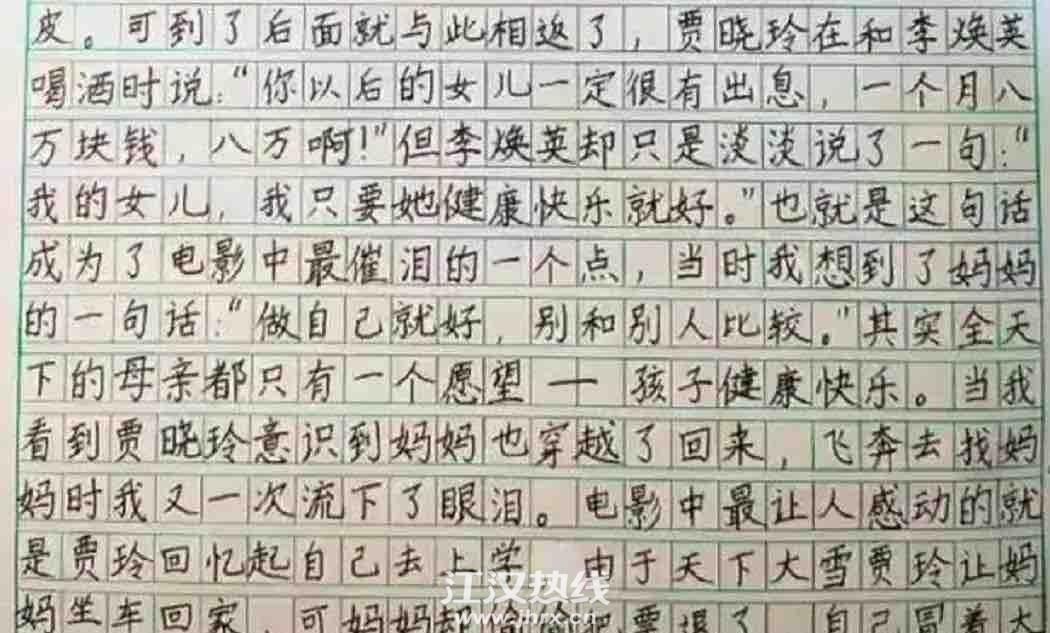 皮。可到了后面就与此相返了，贾晓玲在和李焕英
喝酒时说:“你以后的女儿一定很有出息，一个月八
万块钱，八万啊!”但李焕英却只是淡淡说了一句:“
我的女儿，我只要她健康快乐就好。”也就是这句话
成为了电影中最催泪的一个点，当时我想到了妈妈
的一句话:“做自己就好，别和别人比较。”其实全天
下的母亲都只有一个愿望一孩子健康快乐。当我
看到贾晓玲意识到妈妈也穿越了回来，飞奔去找妈
妈时我又一次流下了眼泪。电影中最让人感动的就
是贾玲回忆起自己去上学 由于天下大雪贾玲让妈
妈坐车回家，可妈妈却偷偷把票退了，自己冒着大
江汉热线
www.jhrx.cn